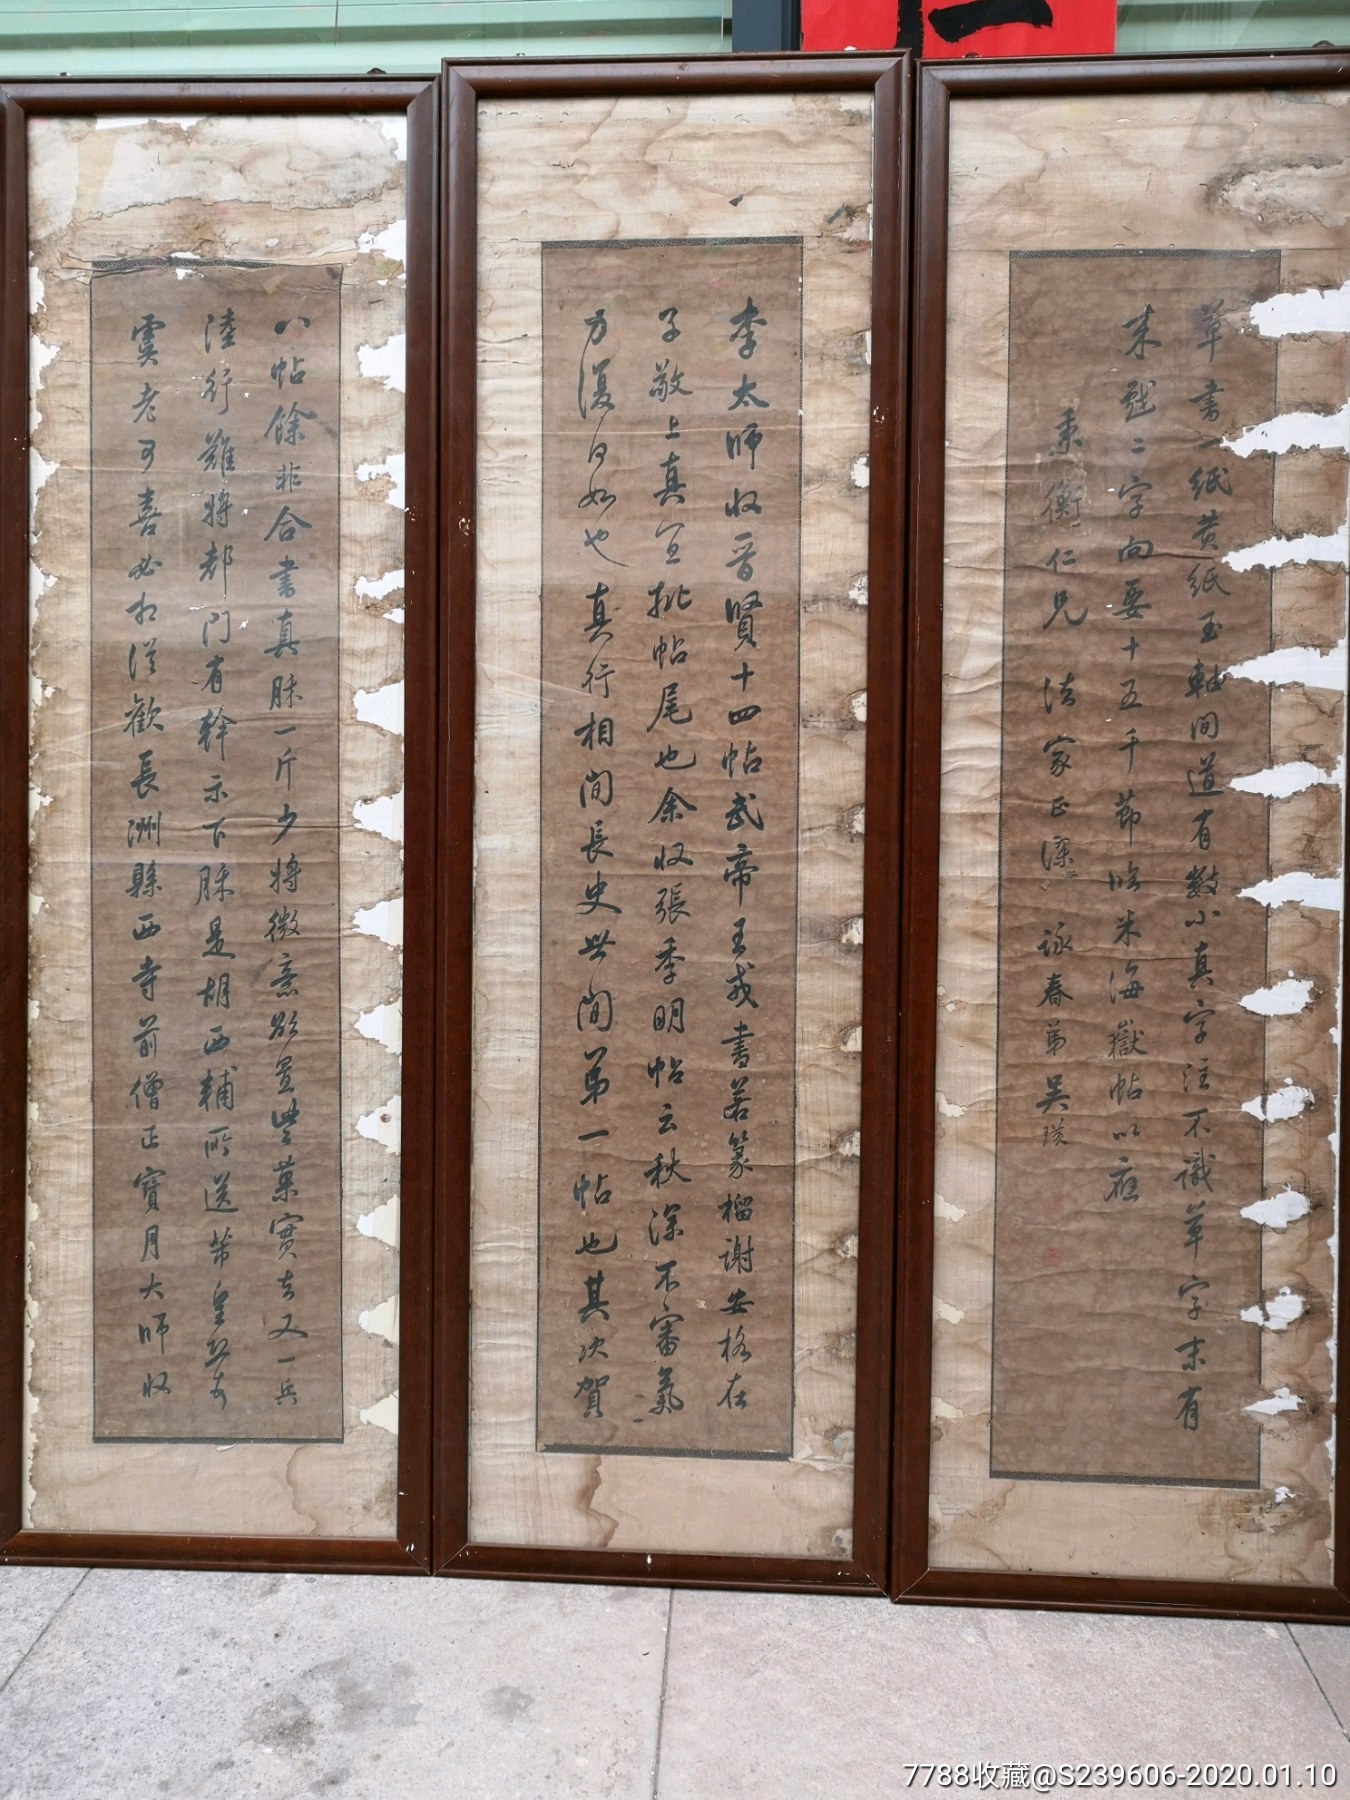 李太師收晉賢十四帖武帝王戎書若篆榴謝安格在
子敬上真宜批帖尾也余收張季明帖云秋深不審氣
力復何如也真行相間長史世間第一帖也其次賀
八帖餘非合書真脉一斤少將微意欲置些菓實去又一兵
陸行難將都門有幹示下脉是胡西輔所送芾皇恐芾
虞老可喜必相從歡長洲縣西寺前僧正寶月大師收
草書一紙黃紙玉軸間道有數小真字注不識草字末有
來戲二字向要十五千節臨米海嶽帖以應
秉衡仁兄法家正 詠春弟吳
7788收藏@S239606-2020.01.10